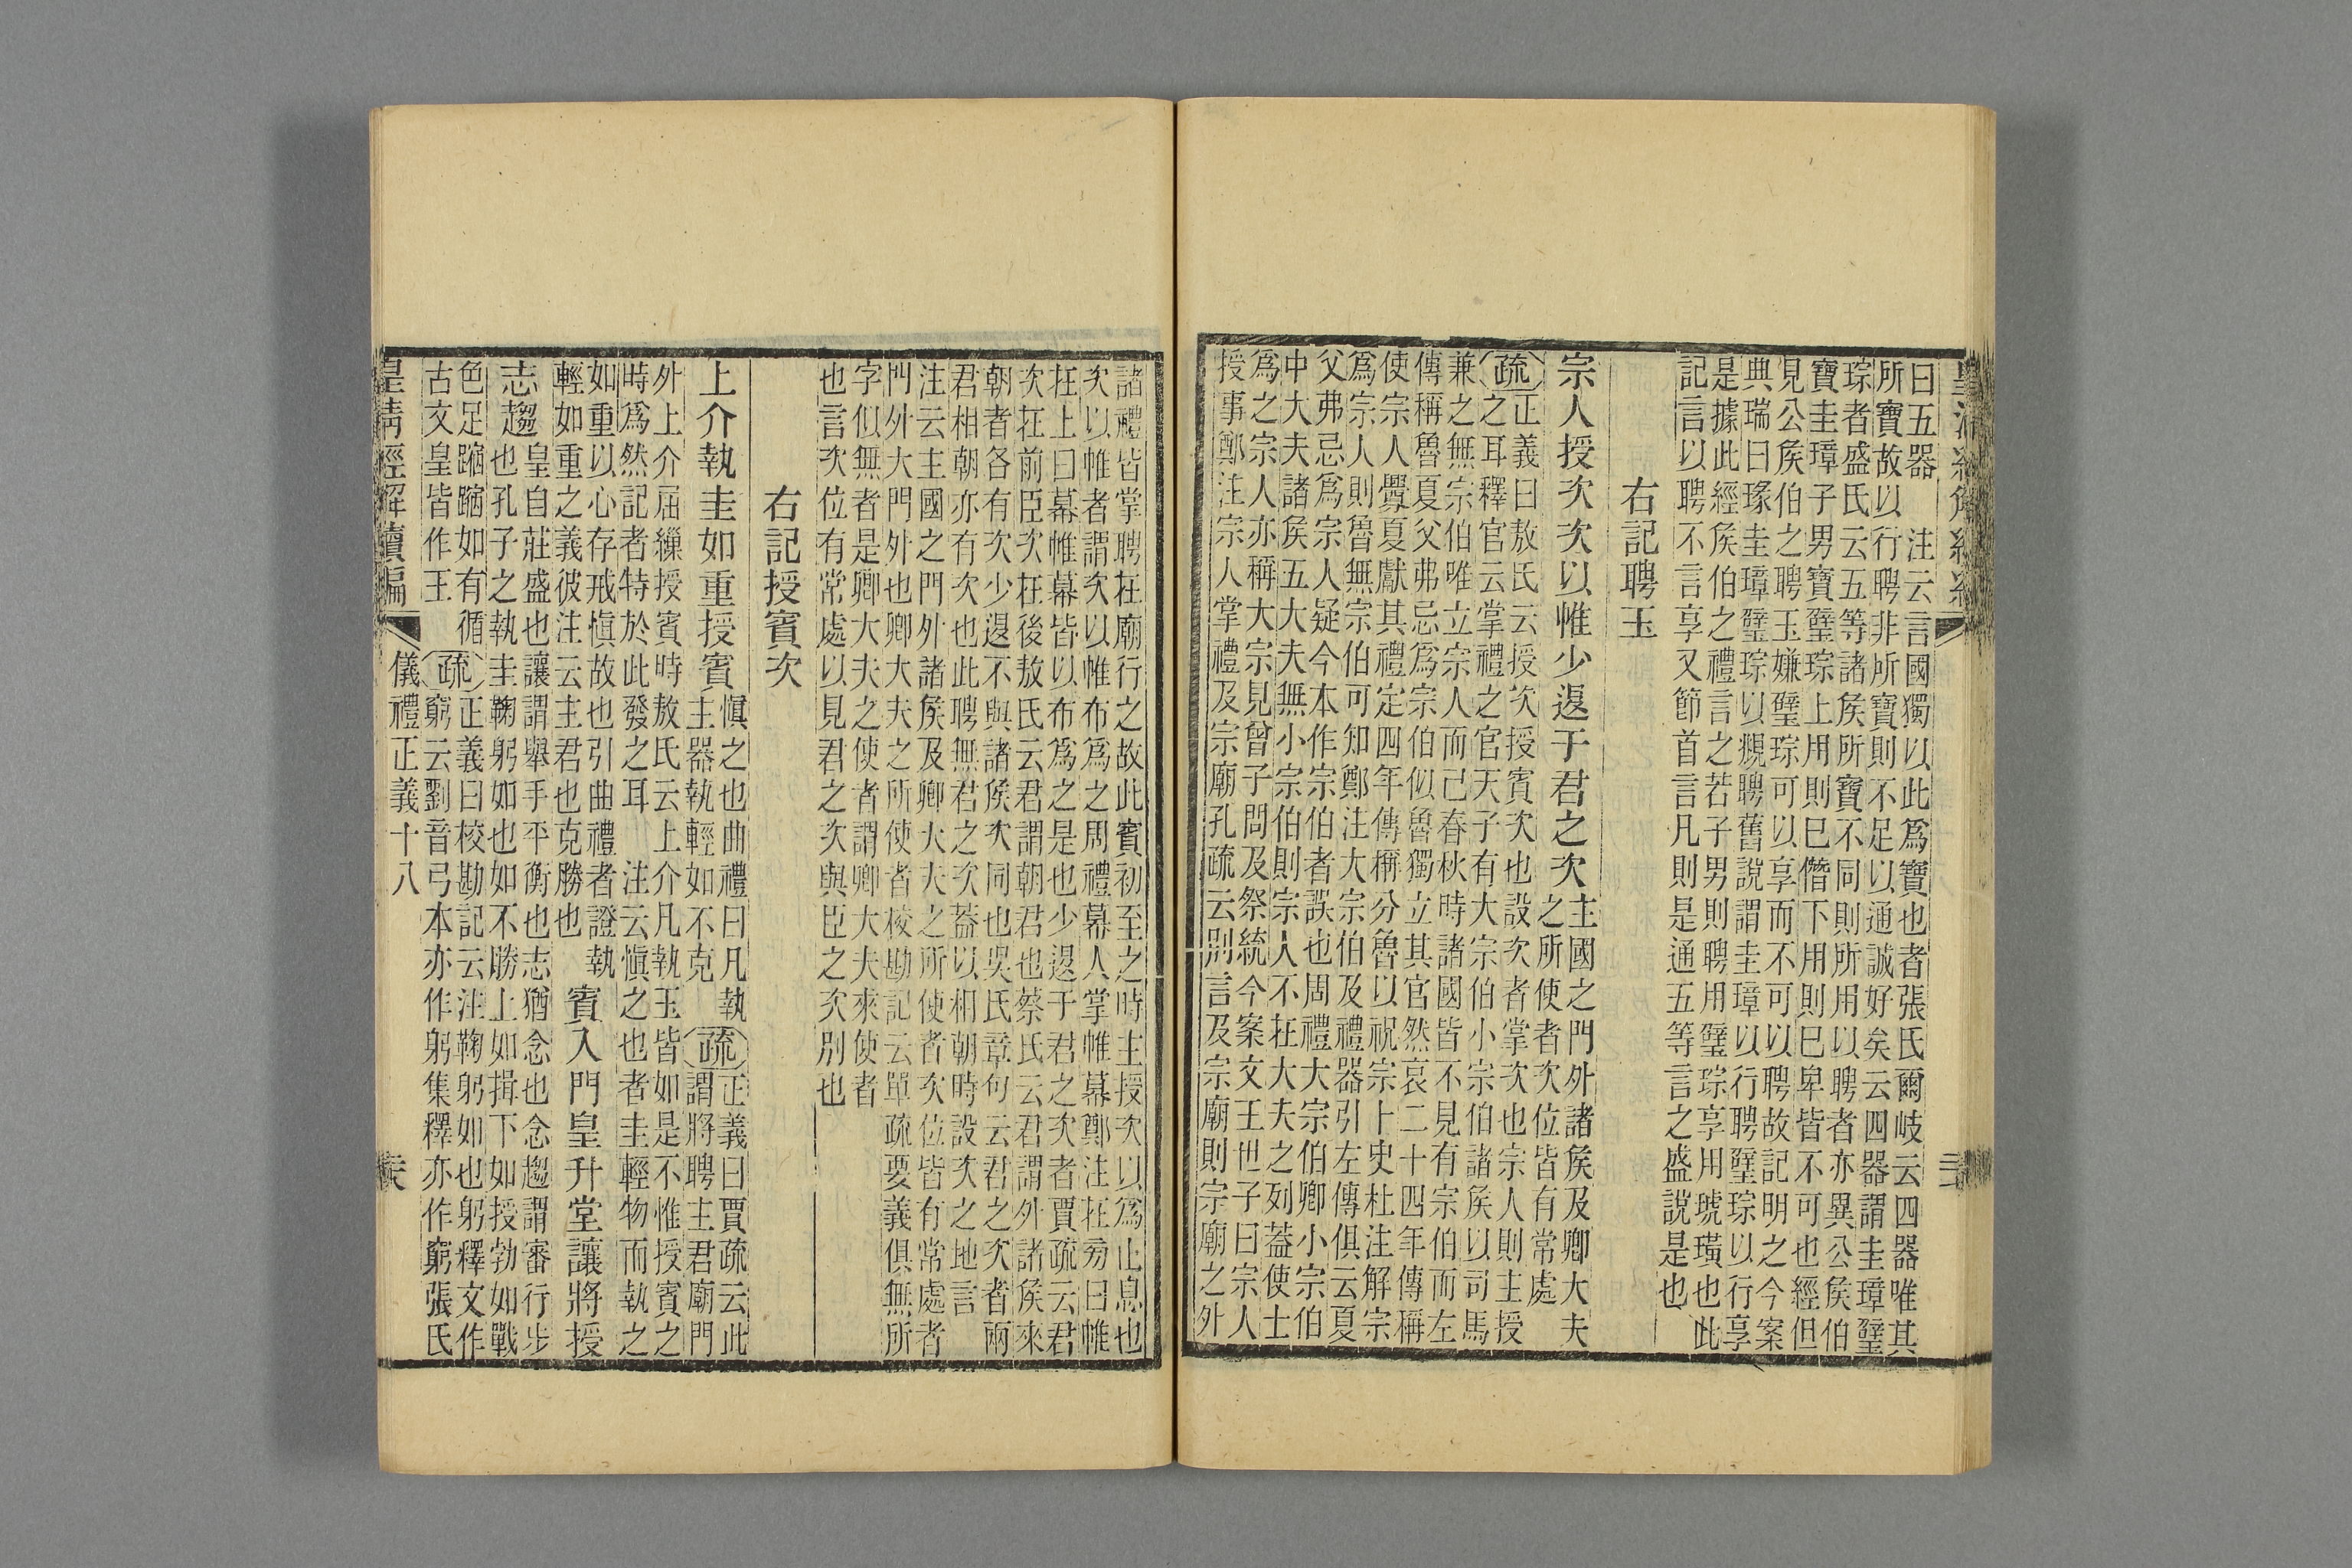 曰五器　注云言國獨以此爲寶也者張氏爾岐云四器唯其
所寶故以行聘非所寶則不足以通誠好矣云四器謂圭璋璧
琮者盛氏云五等諸矦所寶不同則所用以聘者亦異公矦伯
寶圭璋子男寶璧琮上用則巳僭下用則巳卑皆不可也經但
見公矦伯之聘玉嫌璧琮可以享而不可以聘故記明之今案
典瑞曰瑑圭璋璧琮以覜聘舊說謂圭璋以行聘璧琮以行享
是據此經矦伯之禮言之若子男則聘用璧琮享用琥璜也此
記言以聘不言享又節首言凡則是通五等言之盛說是也
右記聘玉
宗人授次次以帷少退于君之次主國之門外諸矦及卿大夫
之所使者次位皆有常處
疏正義曰敖氏云授次授賓次也設次者掌次也宗人則主授
之耳釋官云掌禮之官天子有大宗伯小宗伯諸矦以司馬
兼之無宗伯唯立宗人而已春秋時諸國皆不見有宗伯而左
傳稱魯夏父弗忌爲宗伯似魯獨立其官然哀二十四年傳稱
使宗人釁夏獻其禮定四年傳稱分魯以祝宗卜史杜注解宗
爲宗人則魯無宗伯可知鄭注大宗伯及禮器引左傳俱云夏
父弗忌爲宗人疑今本作宗伯者誤也周禮大宗伯卿小宗伯
中大夫諸矦五大夫無小宗伯則宗人不在大夫之列蓋使士
爲之宗人亦稱大宗見曾子問及祭統今案文王世子曰宗人
授事鄭注宗人掌禮及宗廟孔疏云別言及宗廟則宗廟之外
諸禮皆掌聘在廟行之故此賓初至之時主授次以爲止息也
次以帷者謂次以帷布爲之周禮幕人掌帷幕鄭注在旁曰帷
在上曰幕帷幕皆以布爲之是也少退于君之次者賈疏云君
次在前臣次在後敖氏云君謂朝君也蔡氏云君謂外諸矦來
朝者各有次少退不與諸矦次同也吳氏章句云君之次者兩
君相朝亦有次也此聘無君之次蓋以相朝時設次之地言
注云主國之門外諸矦及卿大夫之所使者次位皆有常處者
門外大門外也卿大夫之所使者校勘記云單疏要義俱無所
字似無者是卿大夫之使者謂卿大夫來使者
也言次位有常處以見君之次與臣之次別也
右記授賓次
上介執圭如重授賓愼之也曲禮曰凡執
主器執輕如不克疏正義曰賈疏云此
謂將聘主君廟門
外上介屈繅授賓時敖氏云上介凡執玉皆如是不惟授賓之
時爲然記者特於此發之耳　注云愼之也者圭輕物而執之
如重以心存戒愼故也引曲禮者證執
輕如重之義彼注云主君也克勝也賓入門皇升堂讓將授
志趨皇自莊盛也讓謂舉手平衡也志猶念也念趨謂審行步
也孔子之執圭鞠躬如也如不勝上如揖下如授勃如戰
色足蹜蹜如有循
古文皇皆作王疏正義曰校勘記云注鞠躬如也躬釋文作
竆云劉音弓本亦作躬集釋亦作竆張氏
皇清經解續編
儀禮正義十八